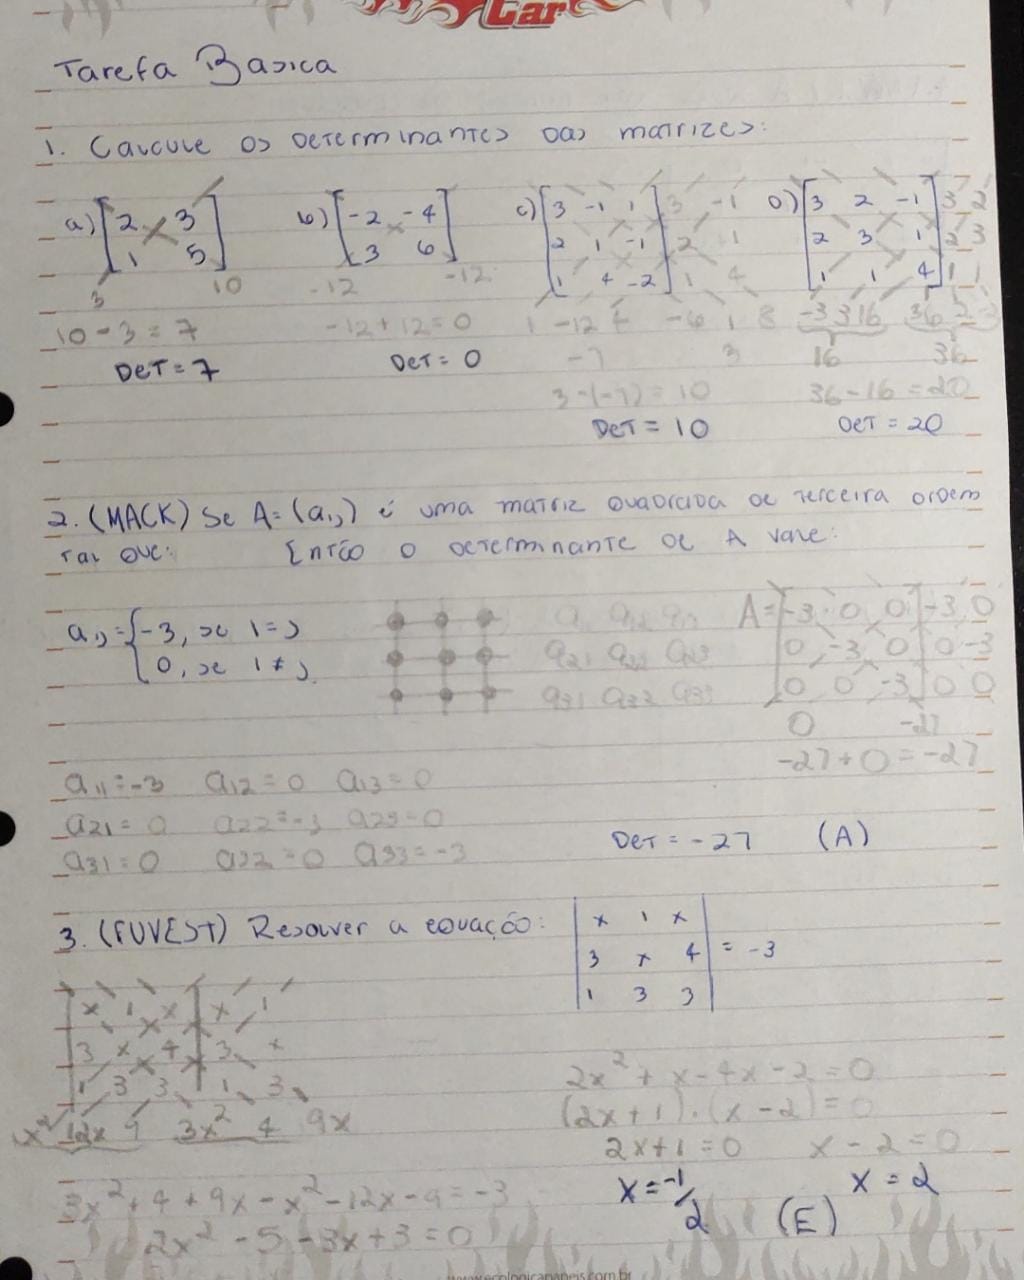 Car
Tarefa Basica
1. Calcule os Determinantes das matrizes:
a) [2 3
1 5]
b) [-2 -4
3 6]
c) [3 -1 1] 3 -1
2 1 -1 2 1
1 4 -2 1 4
D) [3 2 -1] 3 2
2 3 1 2 3
1 1 4 1 1
3 10
-12 -12
1 -12 -6 1 8
-3 3 16 36 2
10 - 3 = 7
-12 + 12 = 0
-7 3
16 36
Det = 7
Det = 0
3 - (-7) = 10
36 - 16 = 20
Det = 10
Det = 20
2. (MACK) Se A = (aij) é uma matriz quadrada de terceira ordem
tal que: Então o determinante de A vale:
aij = {-3, se i = j
0, se i ≠ j.
a21 a22 a23
a31 a32 a33
A = [-3 0 0] -3 0
0 -3 0 0 -3
0 0 -3 0 0
0 -27
-27 + 0 = -27
a11 = -3 a12 = 0 a13 = 0
a21 = 0 a22 = -3 a23 = 0
a31 = 0 a32 = 0 a33 = -3
Det = -27 (A)
3. (FUVEST) Resolver a equação:
|x 1 x|
3 x 4 = -3
1 3 3
x 1 x x 1
3 x 4 3 x
1 3 3 1 3
x² 12x 9 3x² 4 9x
3x² + 4 + 9x - x² - 12x - 9 = -3
2x² - 5 - 3x + 3 = 0
2x² + x - 4x - 2 = 0
(2x + 1) . (x - 2) = 0
2x + 1 = 0 x - 2 = 0
x = -1/2 x = 2
(E)
www.ecologicapapeis.com.br